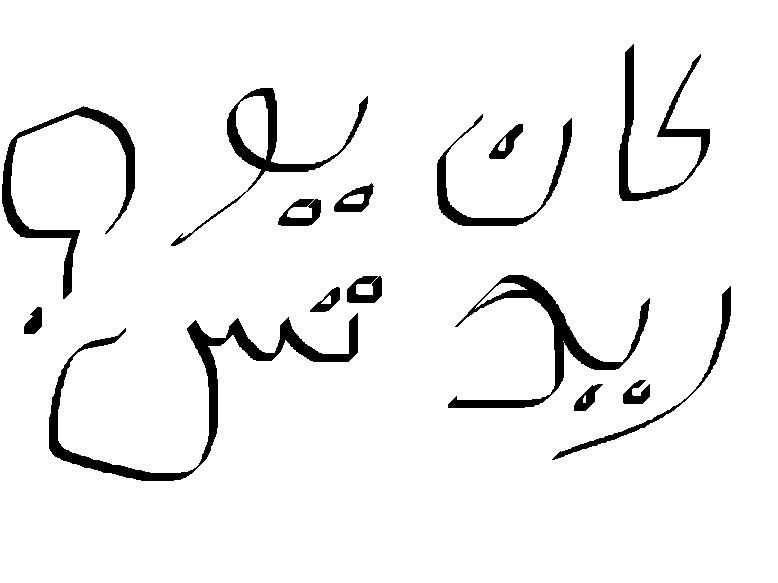 كان يو ؟
ريد تس